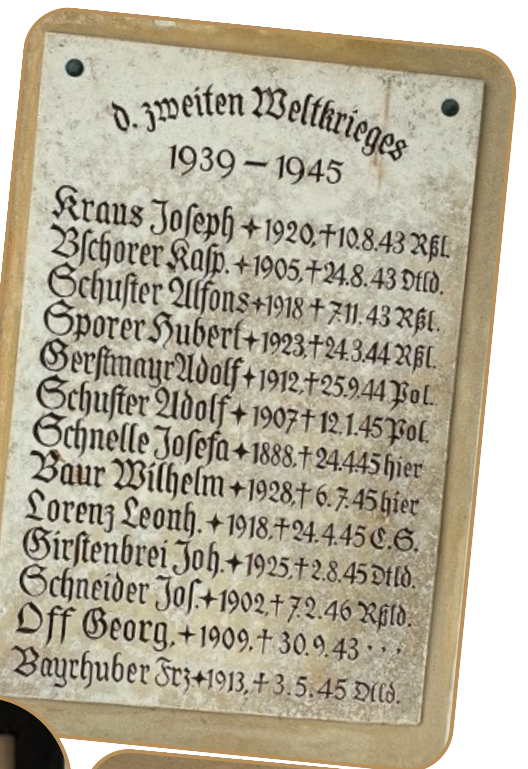 d. zweiten Weltkrieges
1939 – 1945
Kraus Joseph ✦ 1920, † 10.8.43 Rßl.
Bschorer Kasp. ✦ 1905, † 24.8.43 Dtld.
Schuster Alfons ✦ 1918 † 7.11.43 Rßl.
Sporer Hubert ✦ 1923, † 24.3.44 Rßl.
Gerstmayr Adolf ✦ 1912, † 25.9.44 Pol.
Schuster Adolf ✦ 1907 † 12.1.45 Pol.
Schnelle Josefa ✦ 1888, † 24.4.45 hier
Baur Wilhelm ✦ 1928, † 6.7.45 hier
Lorenz Leonh. ✦ 1918, † 24.4.45 C.S.
Girstenbrei Joh. ✦ 1925, † 2.8.45 Dtld.
Schneider Jos. ✦ 1902, † 7.2.46 Rßld.
Off Georg, ✦ 1909. † 30.9.43 · · ·
Bayrhuber Frz ✦ 1913, † 3.5.45 Dtld.